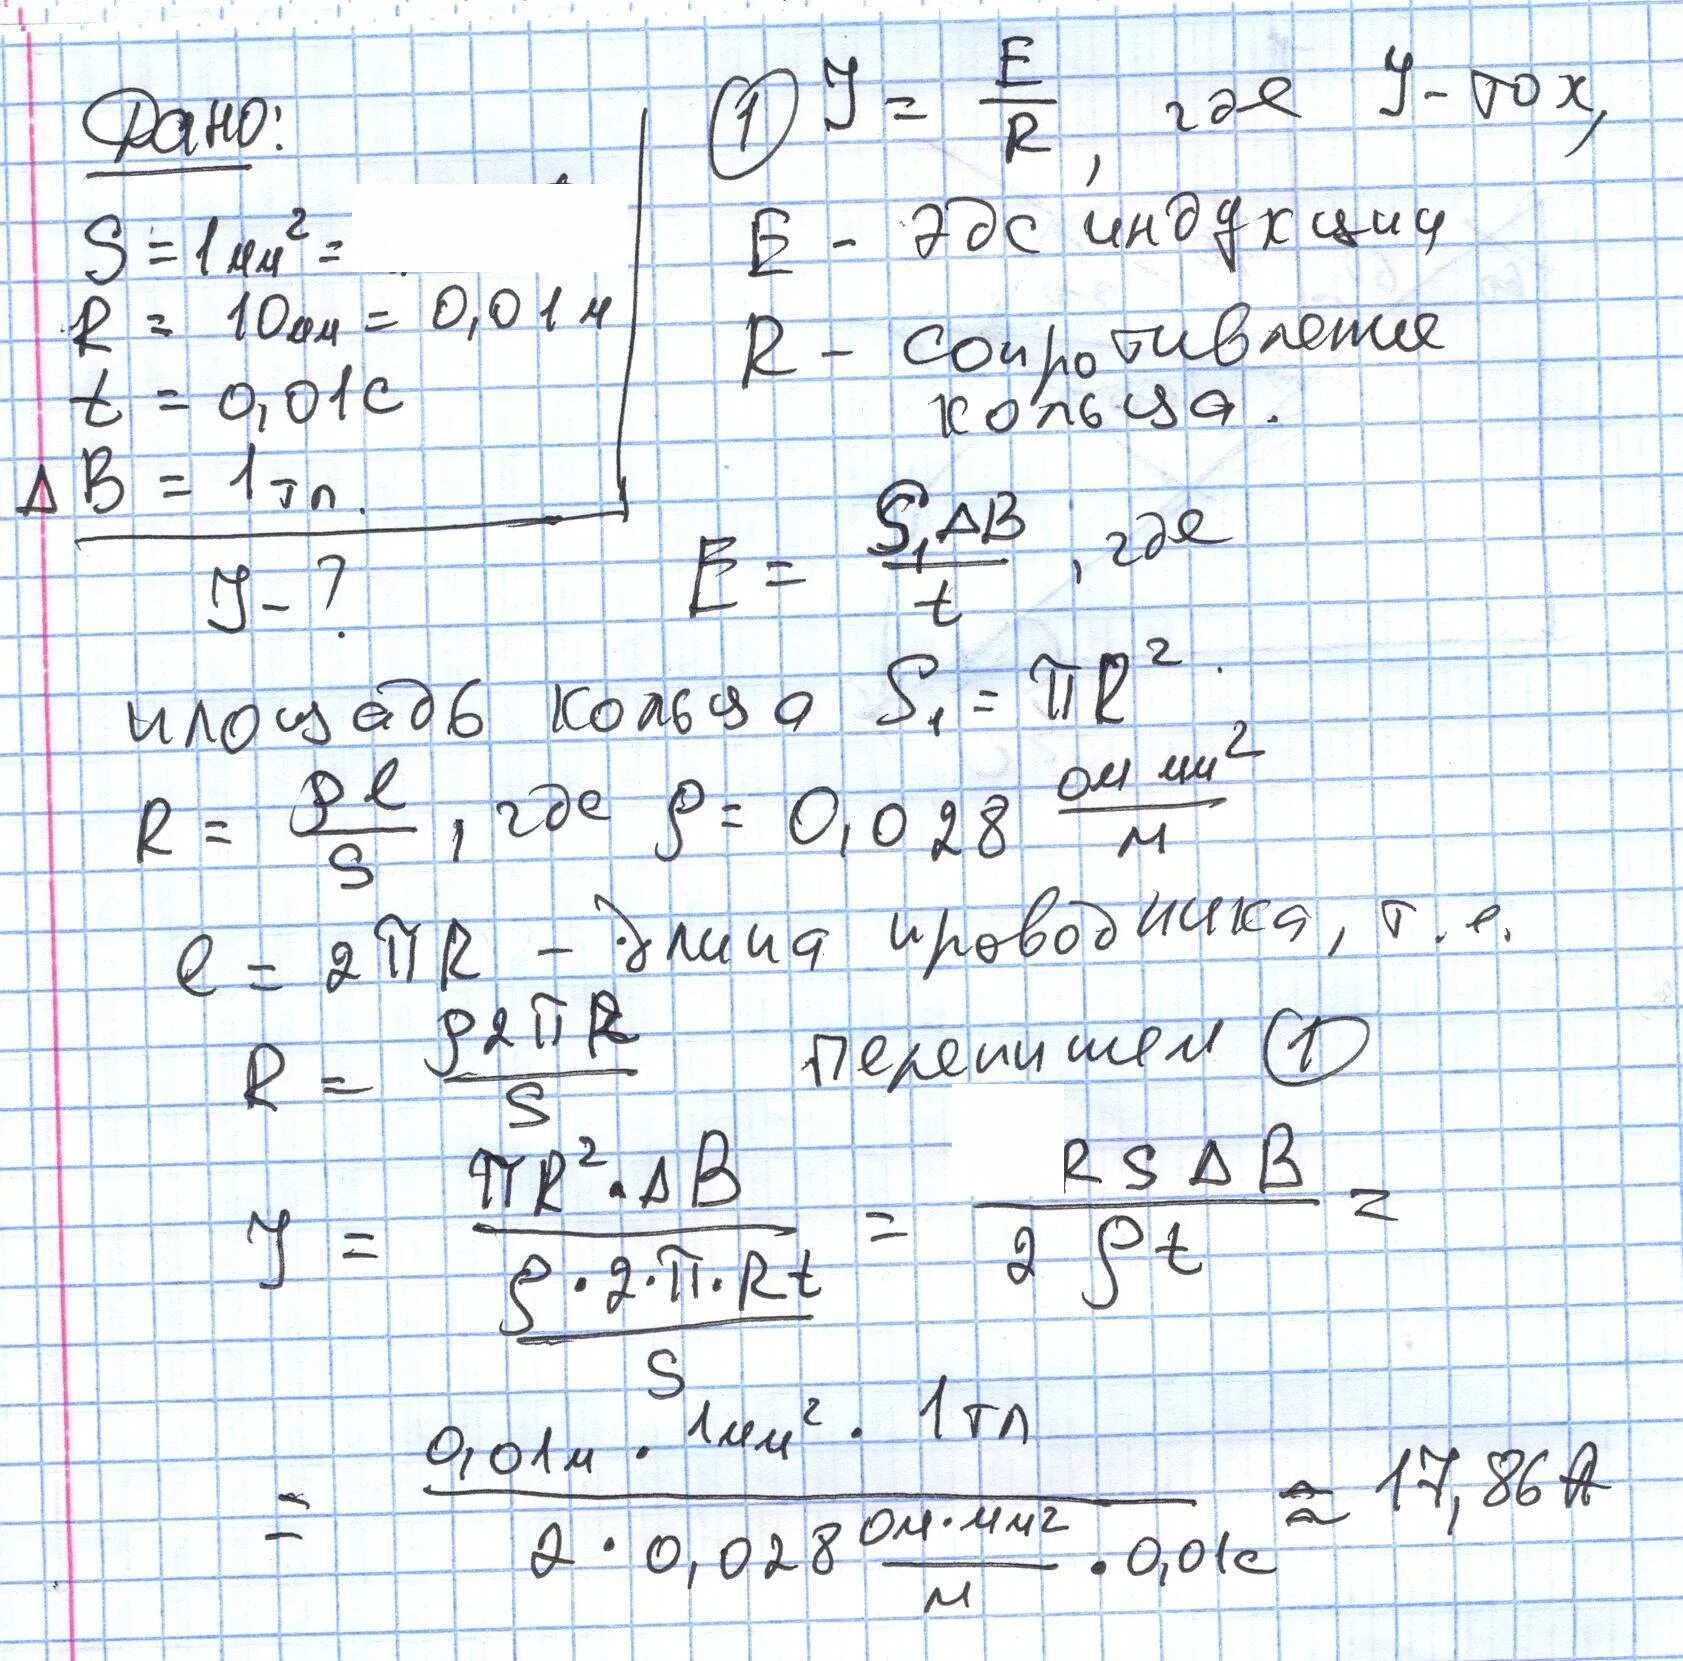 Дано:
S = 1мм² =
R = 10мм = 0,01м
t = 0,01с
ΔB = 1Тл.
J - ?
① J = E/R, где J - ток,
E - эдс индукции
R - сопротивление
кольца.
E = S₁ΔB/t, где
площадь кольца S₁ = πR².
R = ρl/S, где ρ = 0,028 ом мм²/м
l = 2πR - длина проводника, т.е.
R = ρ2πR/S перепишем ①
J = πR²·ΔB / (ρ·2·π·Rt / S) = RSΔB / 2ρt =
= 0,01м · 1мм² · 1Тл / 2 · 0,028 ом·мм²/м · 0,01с ≈ 17,86А